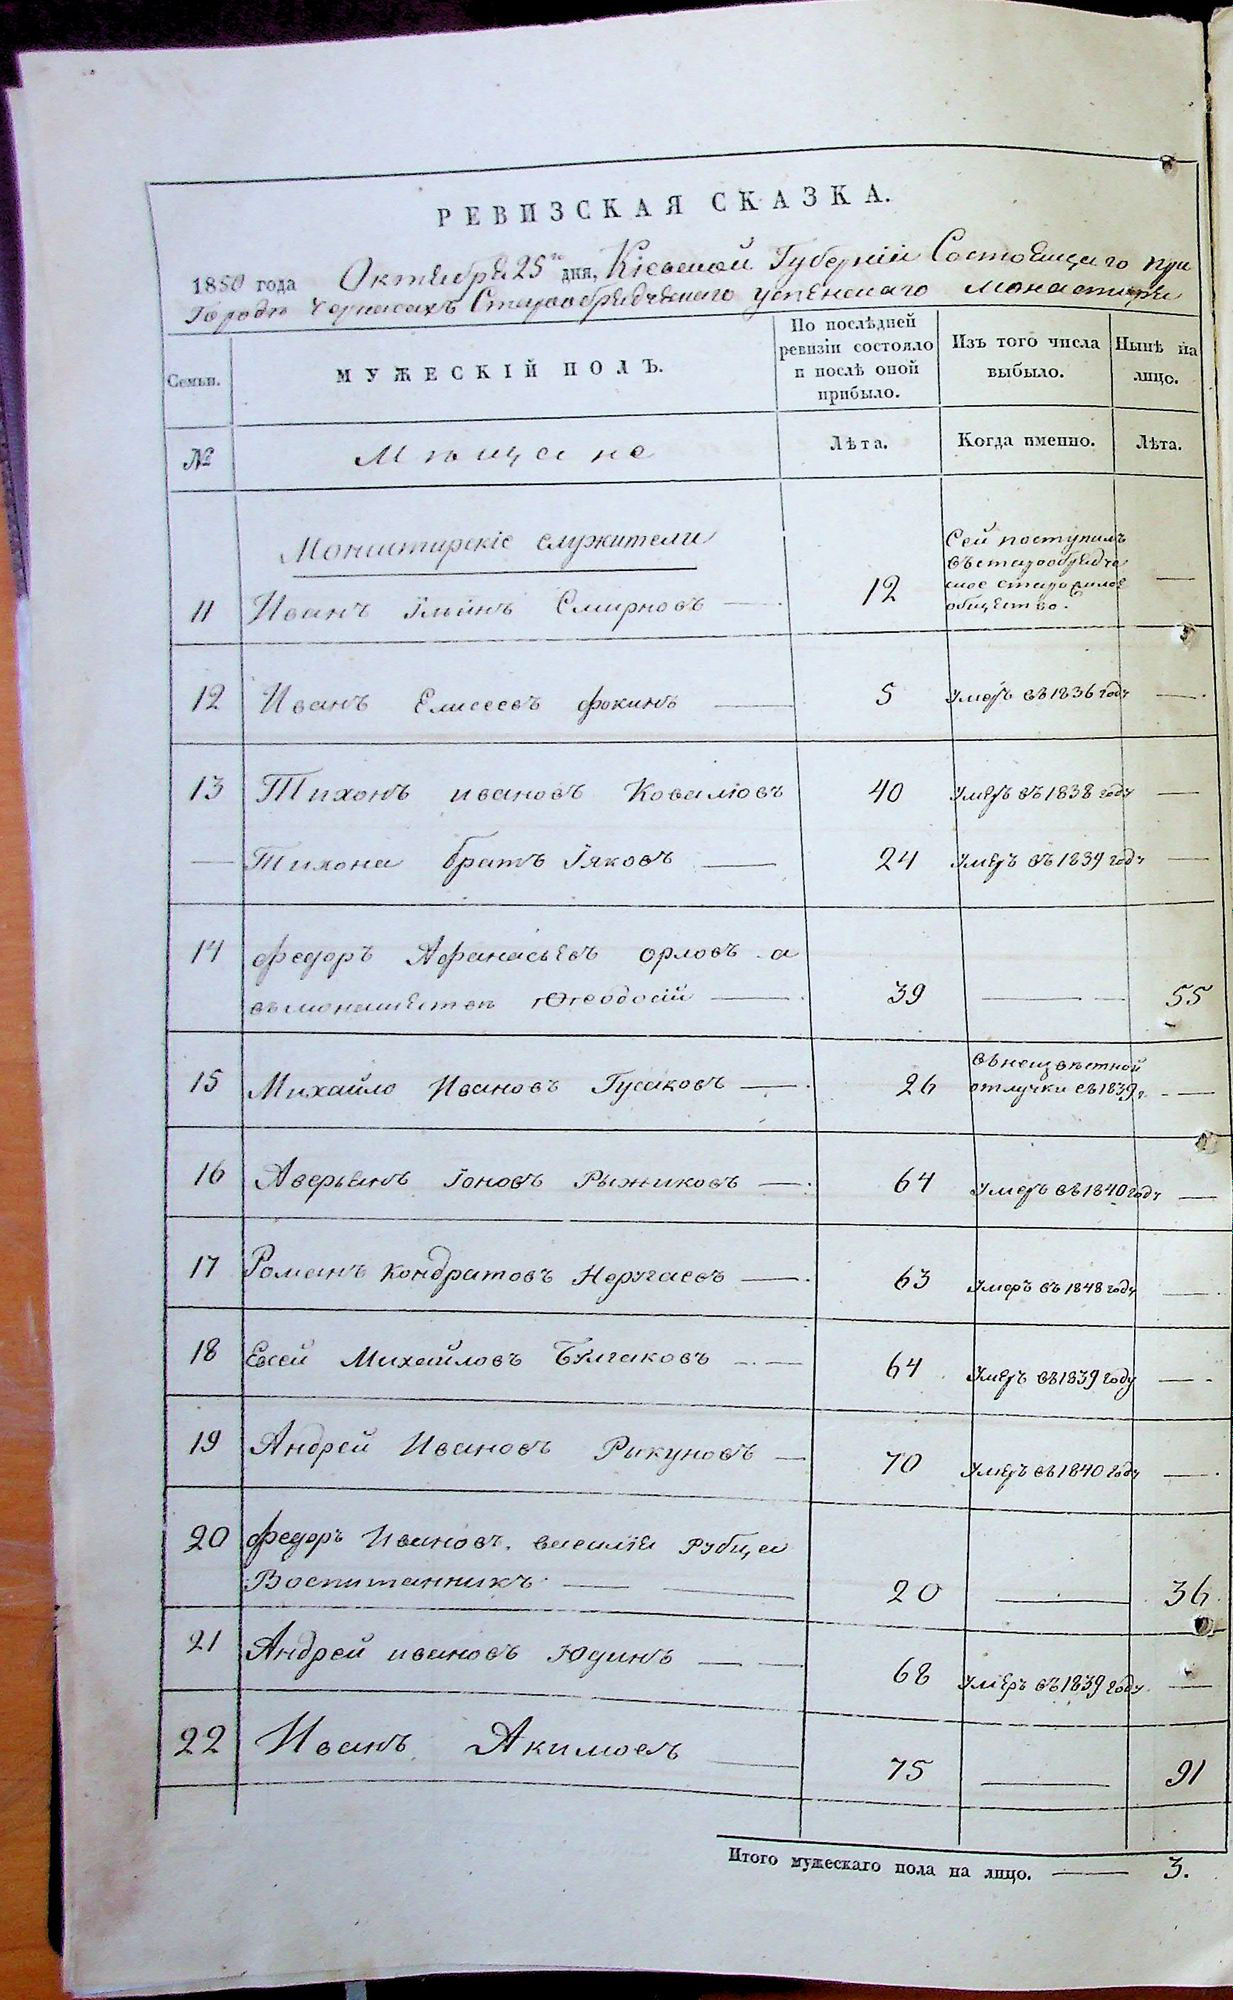 РЕВИЗСКАЯ СКАЗКА.
1850 года Октября 25го дня, Кіевской Губерніи Состоящаго при
Городѣ Черкасахъ Старообрядческаго успенскаго монастыря
Семьи. МУЖЕСКІЙ ПОЛЪ. По послѣдней ревизіи состояло и послѣ оной прибыло. Изъ того числа выбыло. Нынѣ на лицо.
№ Мѣщане Лѣта. Когда именно. Лѣта.
Монастирскіе служители
11 Иванъ Ильинъ Смирновъ — 12 Сей поступилъ въ старообрядческое общество. —
12 Иванъ Елисеевъ фокинъ — 5 Умеръ въ 1836 годѵ —
13 Тихонъ ивановъ Ковалювъ 40 Умеръ въ 1838 годꙋ —
— Тихона братъ Іяковъ — 24 Умеръ въ 1839 годꙋ —
14 федоръ Афанасьевъ орловъ а
въ монашествѣ Ѳеодосій — 39 — 55
15 Михайло Ивановъ Гусаковъ — 26 въ неизвѣстной отлучки съ 1839 г. —
16 Аверьянъ Іоновъ Рыжиковъ — 64 Умеръ въ 1840 годꙋ —
17 Романъ Кондратовъ Неругаевъ — 63 Умеръ въ 1848 годꙋ —
18 Евсей Михайловъ Булгаковъ — 64 Умеръ въ 1839 году —
19 Андрей Ивановъ Рыкуновъ — 70 Умеръ въ 1840 годꙋ —
20 федоръ Ивановъ. василія рубца
Воспитанникъ — 20 — 36
21 Андрей ивановъ Юдинъ — 68 Умеръ въ 1839 годꙋ —
22 Иванъ Акимовъ — 75 — 91
Итого мужескаго пола на лицо. — 3.